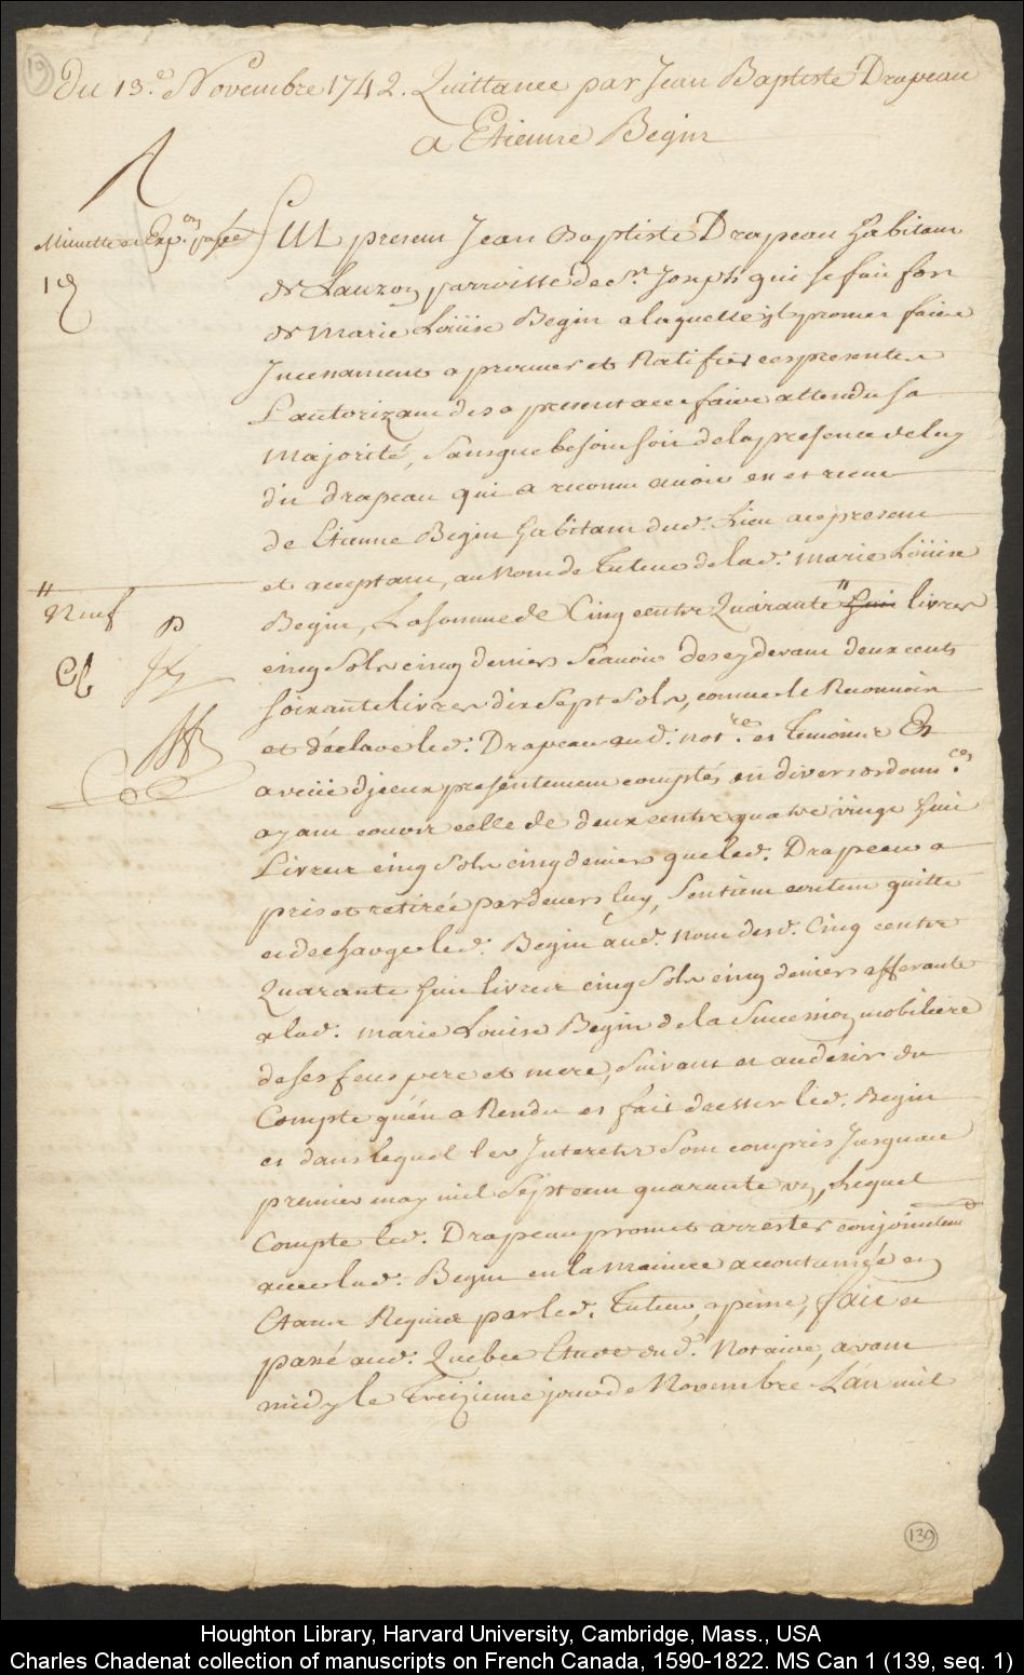 19
Du 13.e Novembre 1742. Quittance par Jean Baptiste Drapeau
a Etienne Begin
Minutte et Exp.on payée
fut present Jean Baptiste Drapeau habitant
de Lauzon parroisse de St. Joseph qui se fait fort
de Marie Loüise Begin a laquelle il promet faire
Incenament aprouver et Ratifier ces presentes
L'autorizant des a present a ce faire attendu sa
Majorité, sans que besoin soit de la presence deluy
dit drapeau qui a reconnu avoir eu et receu
de Etienne Begin habitant dud. Lieu a ce present
et acceptant, au Nom de Tuteur de lad. Marie Loüise
"
Neuf
Begin, La somme de Cinq cents Quarante " huit livres
cinq sols cinq deniers Scavoir des cy devant deux cents
soixante livres dix sept sols, comme le Reconnoist
et déclare led. Drapeau aud. not.re et temoins Et
a veüe d'jceux presentement comptés en divers ordonn.ces
ayant couvs celle de deux cents quatre vingt huit
Livres cinq sols cinq deniers que led. Drapeau a
pris et retirée pardevers luy, S'en tient content quitte
et decharge led. Begin aud. nom desd. Cinq cents
Quarante huit livres cinq sols cinq deniers afferante
a lad. Marie Louise Begin de la Succession mobiliere
de ses feus pere et mere, suivant et au desir du
Compte qu'en a Rendu et fait dresser led. Begin
et dans lequel les Interets sont compris Jusqu'au
premier may mil sept cent quarante un, Lequel
Compte led. Drapeau promet arrester conjointem.t
avec led. Begin en la maniere accoutumée en
Etant Requis par led. Tuteur, a peine, fait et
passé aud. Quebec Etude dud. Notaire, avant
midy le treizieme jour de Novembre L'an mil
139
Houghton Library, Harvard University, Cambridge, Mass., USA
Charles Chadenat collection of manuscripts on French Canada, 1590-1822. MS Can 1 (139, seq. 1)